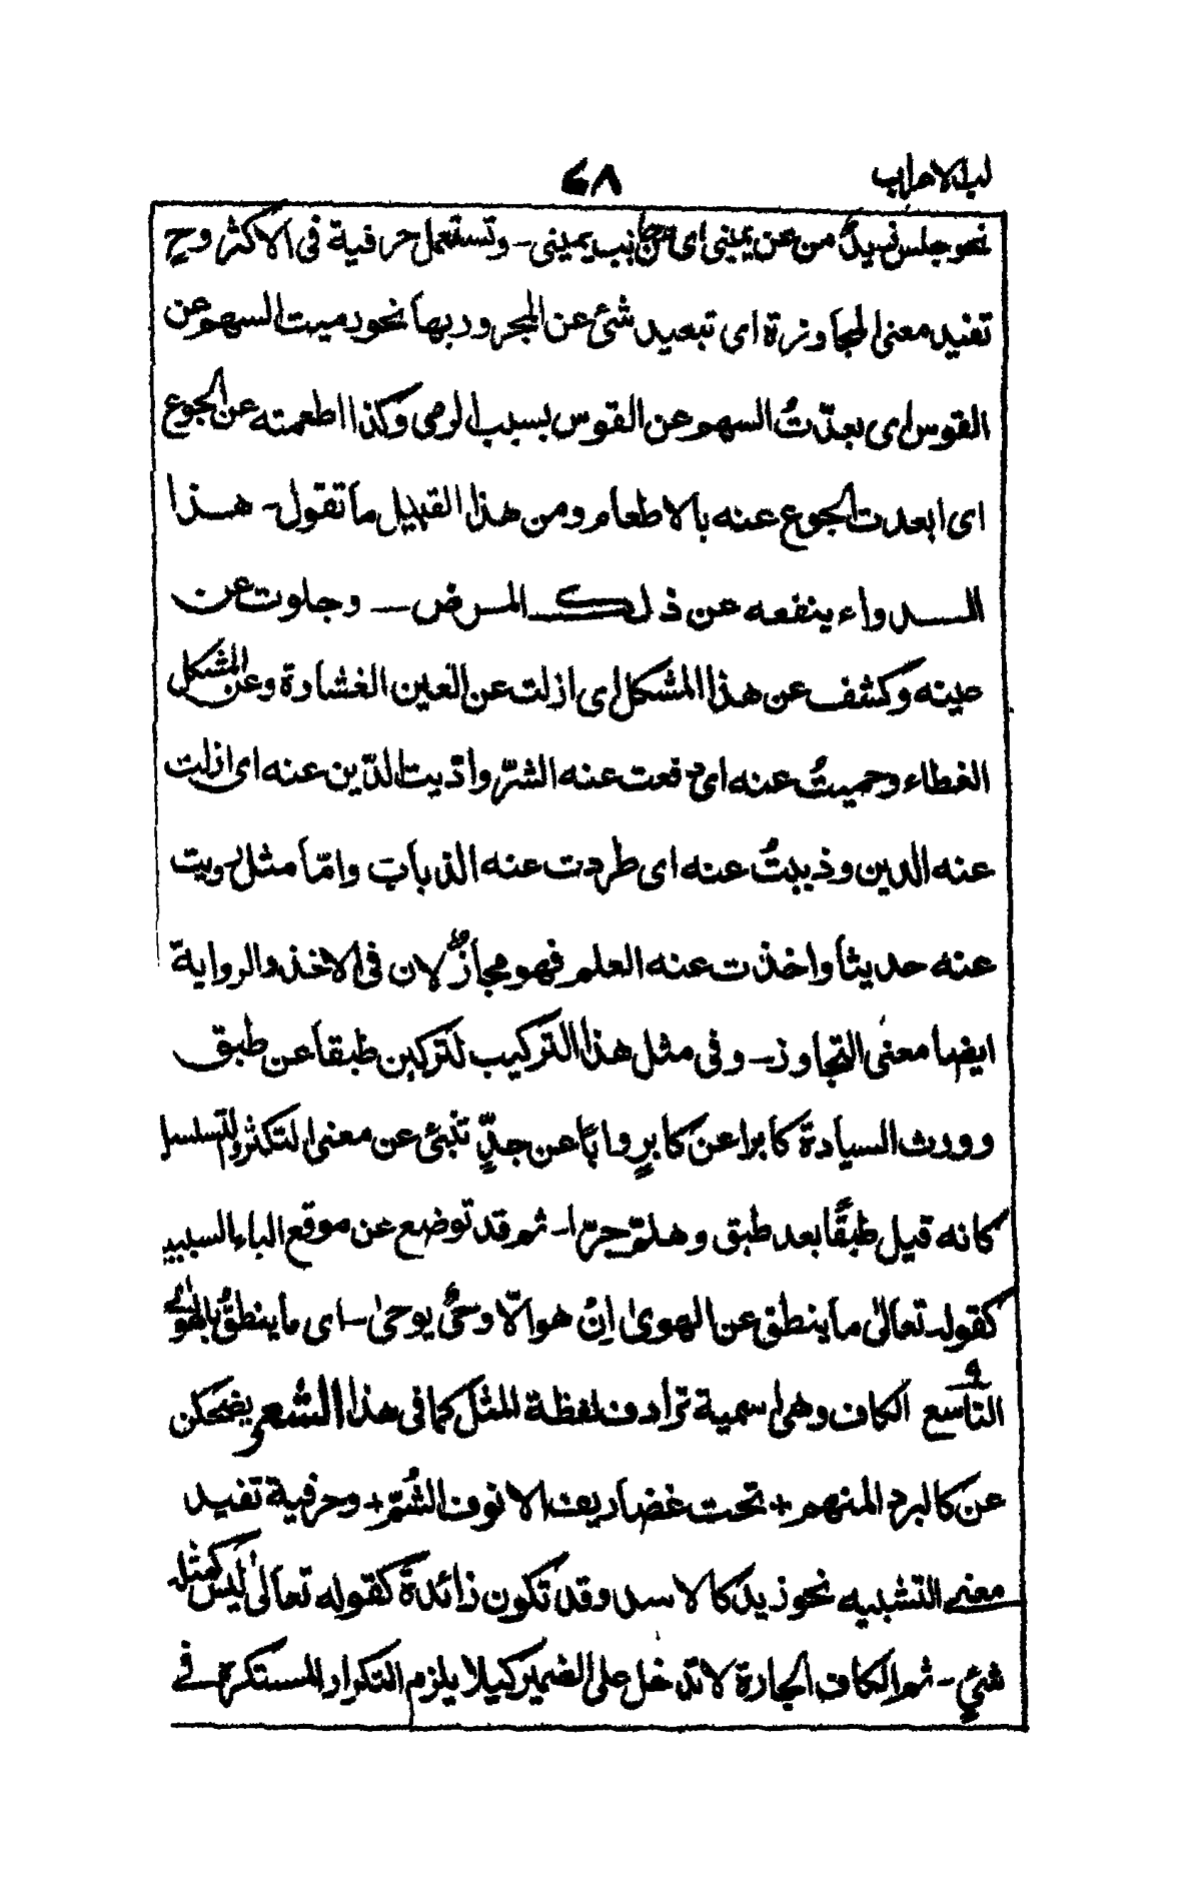 لب الاعراب
٦٨
نحو جلس زيدٌ من عن يميني اى من جانب يميني ـ وتستعمل حرفية فى الاكثر وح
تفيد معنى المجاوزة اى تبعيد شئ عن المجرور بها نحو رميت السهم عن
القوس اى بعدّتُ السهم عن القوس بسبب الرمى وكذا اطعمته عن الجوع
اى ابعدت الجوع عنه بالاطعام ومن هذا القبيل ما تقول ـ هذا
الدواء ينفعه عن ذلك المرض ـ وجلوت عن
عينه وكشف عن هذا المشكل اى ازلت عن العين الغشاوة وعن المشكل
الغطاء وحميتُ عنه اى دفعت عنه الشرّ وادّيت الدّين عنه اى ازلت
عنه الدين وذببتُ عنه اى طردت عنه الذباب وامّا مثل رويت
عنه حديثا واخذت عنه العلم فهو مجازٌ لان فى الاخذ والرواية
ايضا معنى التجاوز ـ وفى مثل هذا التركيب لتركبن طبقا عن طبق
وورث السيادة كابرا عن كابرٍ وابًا عن جدٍّ تنبئ عن معنى التكثر والتسلسل
كانه قيل طبقًا بعد طبق وهلمّ جرّا ـ ثم قد توضع عن موقع الباء السببية
كقوله تعالىٰ ما ينطق عن الهوىٰ اِنْ هو الّا وحىٌ يوحىٰ ـ اى ما ينطقُ بالهوىٰ
التاسع الكاف وهى اسمية ترادف لفظة المثل كما فى هذا الشعر يضحكن
عن كالبرد المنهم + تحت غضاريف الانوف الشُمّ + وحرفية تفيد
معنى التشبيه نحو زيدٌ كالاسد وقد تكون زائدة كقوله تعالىٰ ليس كمثله
شئٍ ـ ثم الكاف الجارة لا تدخل على الضمير كيلا يلزم التكرار المستكره فى